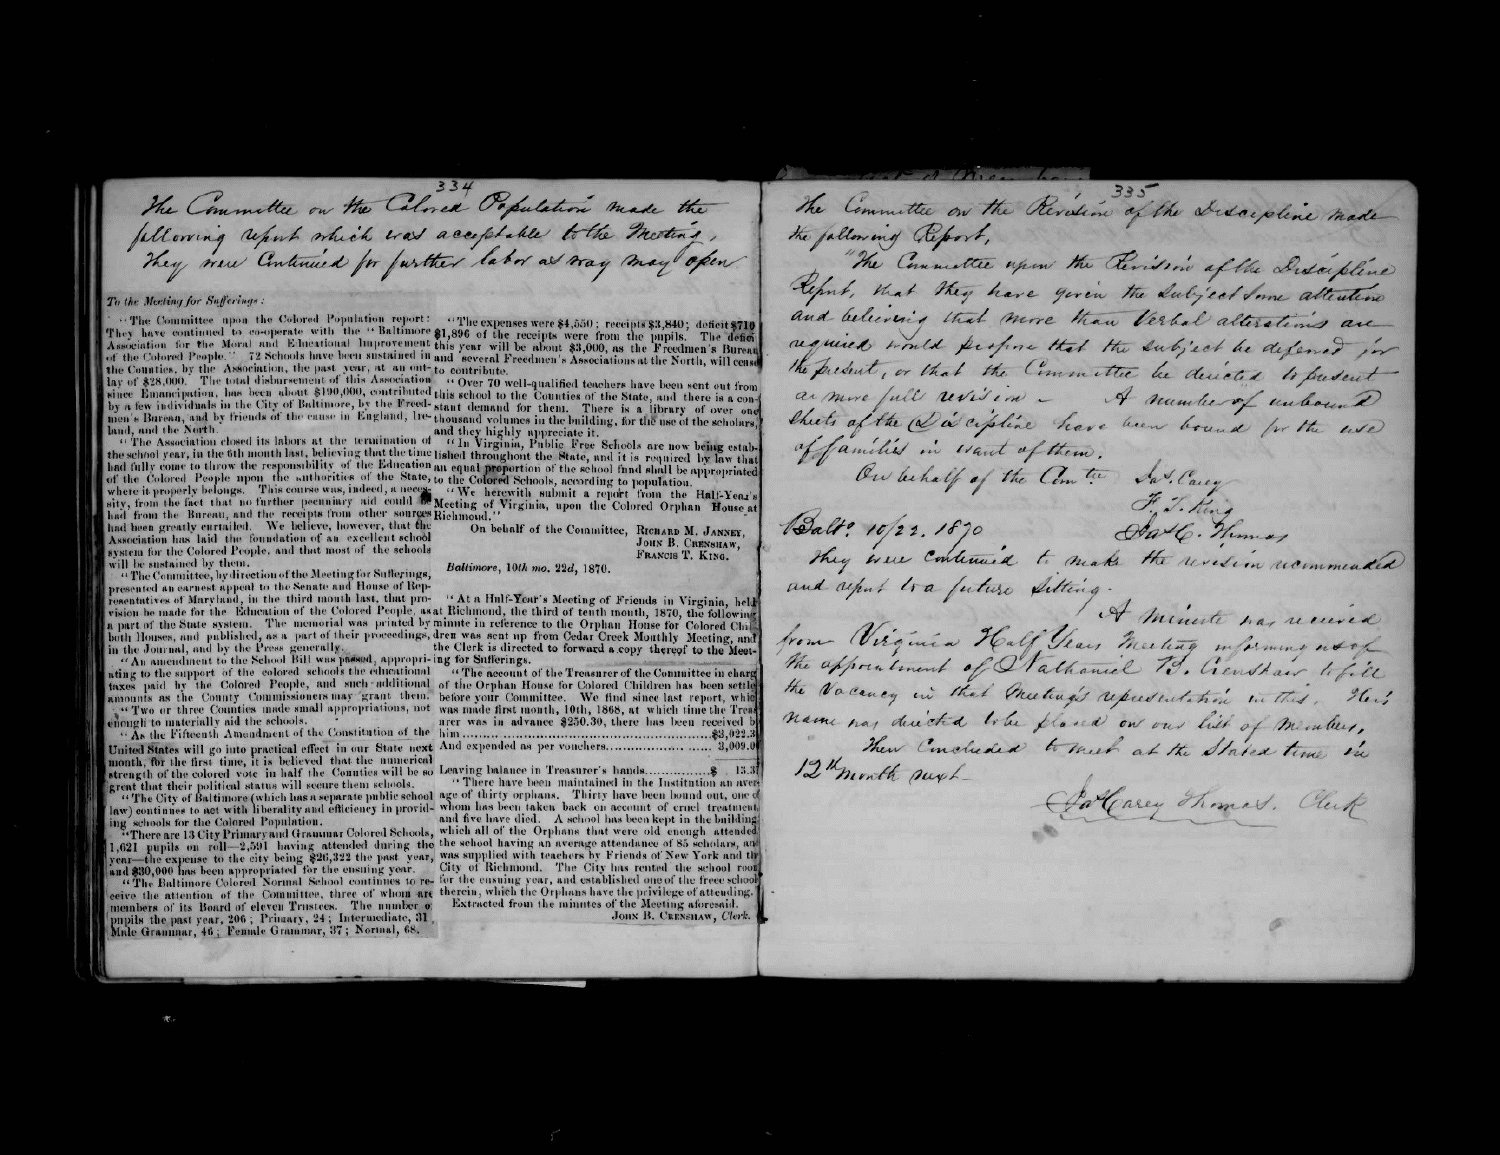 334
The Committee on the Colored Population made the
following report which was acceptable to the Meeting,
They were Continued for further labor as way may open
To the Meeting for Sufferings:
"The Committee upon the Colored Population report:
They have continued to co-operate with the "Baltimore
Association for the Moral and Educational Improvement
of the Colored People." 72 Schools have been sustained in
the Counties, by the Association, the past year, at an out-
lay of $28,000. The total disbursement of this Association
since Emancipation, has been about $190,000, contributed
by a few individuals in the City of Baltimore, by the Freed-
men's Bureau, and by friends of the cause in England, Ire-
land, and the North.
"The Association closed its labors at the termination of
the school year, in the 6th month last, believing that the time
had fully come to throw the responsibility of the Education
of the Colored People upon the authorities of the State,
where it properly belongs. This course was, indeed, a neces-
sity, from the fact that no further pecuniary aid could be
had from the Bureau, and the receipts from other sources
had been greatly curtailed. We believe, however, that the
Association has laid the foundation of an excellent school
system for the Colored People, and that most of the schools
will be sustained by them.
"The Committee, by direction of the Meeting for Sufferings,
presented an earnest appeal to the Senate and House of Rep-
resentatives of Maryland, in the third month last, that pro-
vision be made for the Education of the Colored People, as
a part of the State system. The memorial was printed by
both Houses, and published, as a part of their proceedings,
in the Journal, and by the Press generally.
"An amendment to the School Bill was passed, appropri-
ating to the support of the colored schools the educational
taxes paid by the Colored People, and such additional
amounts as the County Commissioners may grant them.
"Two or three Counties made small appropriations, not
enough to materially aid the schools.
"As the Fifteenth Amendment of the Constitution of the
United States will go into practical effect in our State next
month, for the first time, it is believed that the numerical
strength of the colored vote in half the Counties will be so
great that their political status will secure them schools.
"The City of Baltimore (which has a separate public school
law) continues to act with liberality and efficiency in provid-
ing schools for the Colored Population.
"There are 13 City Primary and Grammar Colored Schools,
1,621 pupils on roll—2,591 having attended during the
year—the expense to the city being $26,322 the past year,
and $30,000 has been appropriated for the ensuing year.
"The Baltimore Colored Normal School continues to re-
ceive the attention of the Committee, three of whom are
members of its Board of eleven Trustees. The number o
pupils the past year, 206; Primary, 24; Intermediate, 31
Male Grammar, 46; Female Grammar, 37; Normal, 68.
"The expenses were $4,550; receipts $3,840; deficit $710
$1,896 of the receipts were from the pupils. The defici
this year will be about $3,000, as the Freedmen's Bureau
and several Freedmen's Associations at the North, will cease
to contribute.
"Over 70 well-qualified teachers have been sent out from
this school to the Counties of the State, and there is a con-
stant demand for them. There is a library of over one
thousand volumes in the building, for the use of the scholars,
and they highly appreciate it.
"In Virginia, Public Free Schools are now being estab-
lished throughout the State, and it is required by law that
an equal proportion of the school fund shall be appropriated
to the Colored Schools, according to population.
"We herewith submit a report from the Half-Year's
Meeting of Virginia, upon the Colored Orphan House at
Richmond."
On behalf of the Committee, RICHARD M. JANNEY,
JOHN B. CRENSHAW,
FRANCIS T. KING.
Baltimore, 10th mo. 22d, 1870.
"At a Half-Year's Meeting of Friends in Virginia, held
at Richmond, the third of tenth month, 1870, the following
minute in reference to the Orphan House for Colored Chil
dren was sent up from Cedar Creek Monthly Meeting, and
the Clerk is directed to forward a copy thereof to the Meet-
ing for Sufferings.
"The account of the Treasurer of the Committee in charg
of the Orphan House for Colored Children has been settle
before your Committee. We find since last report, whic
was made first month, 10th, 1868, at which time the Treas
urer was in advance $250.30, there has been received b
him.......................................................$3,022.3
And expended as per vouchers........................ 3,009.0
Leaving balance in Treasurer's hands...............$ 13.3
"There have been maintained in the Institution an aver-
age of thirty orphans. Thirty have been bound out, one o
whom has been taken back on account of cruel treatment
and five have died. A school has been kept in the building
which all of the Orphans that were old enough attended
the school having an average attendance of 85 scholars, an
was supplied with teachers by Friends of New York and th
City of Richmond. The City has rented the school roo
for the ensuing year, and established one of the freee school
therein, which the Orphans have the privilege of attending.
Extracted from the minutes of the Meeting aforesaid.
JOHN B. CRENSHAW, Clerk.
335
The Committee on the Revision of the Discipline made
the following Report,
"The Committee upon the Revision of the Discipline
Report, that they have given the subject some attention
and believing that more than Verbal alterations are
required would propose that the subject be deferred for
the present, or that the Committee be directed to present
a more full revision – A number of unbound
sheets of the Discipline have been bound for the use
of families in want of them.
On behalf of the Comtee Jas. Carey
F. T. King
Balto. 10/22. 1870 Jas C. Thomas
They were continued to make the revision recommended
and report to a future sitting.
A minute was received
from Virginia Half Years Meeting informing us of
the appointment of Nathaniel B. Crenshaw to fill
the vacancy in that Meeting's representation in this. His
name was directed to be placed on our list of members.
Then Concluded to meet at the Stated time in
12th month next
Jas Carey Thomas. Clerk